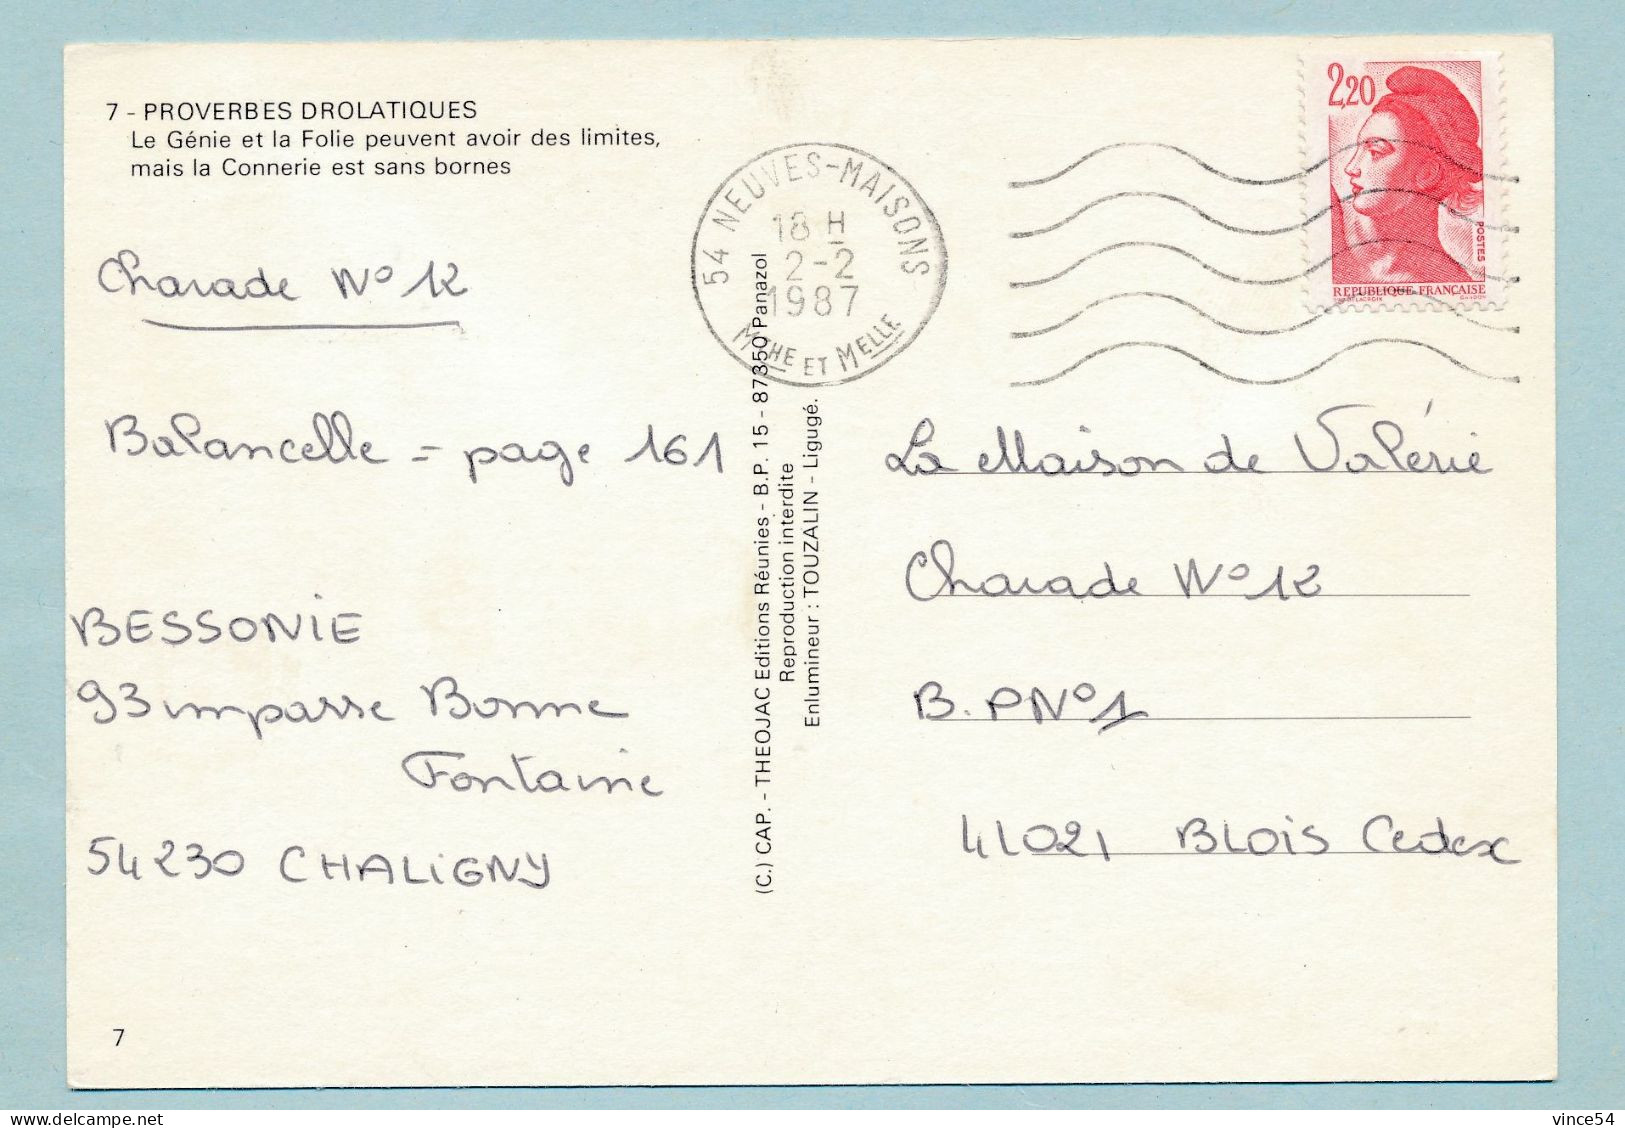 7 - PROVERBES DROLATIQUES
Le Génie et la Folie peuvent avoir des limites,
mais la Connerie est sans bornes
Charade N° 12
Balancelle = page 161
BESSONIE
93 impasse Bonne
Fontaine
54230 CHALIGNY
7
(C.) CAP. - THEOJAC Editions Réunies - B.P. 15 - 87350 Panazol
Reproduction interdite
Enlumineur : TOUZALIN - Ligugé.
54 NEUVES-MAISONS
18 H
2-2
1987
MTHE ET MELLE
2,20
POSTES
REPUBLIQUE FRANÇAISE
D'AP. DELACROIX GANDON
La Maison de Valérie
Charade N° 12
B.P N° 1
41021 BLOIS Cedex
vince54